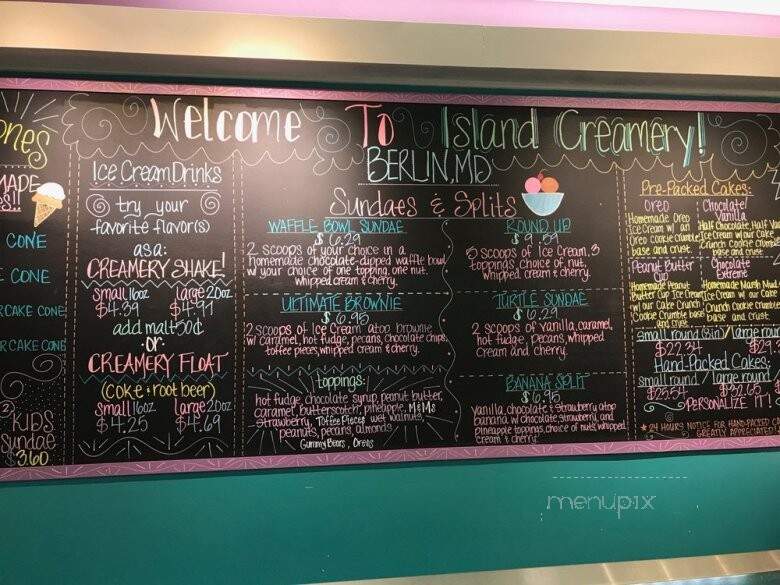 Welcome To Island Creamery!
BERLIN, MD
ones
MADE
S!!
CONE
CONE
RCAKE CONE
RCAKE CONE
KIDS
Sundae
$3.60
Ice Cream Drinks
try your
favorite flavor(s)
as a:
CREAMERY SHAKE!
small 16oz large 20oz
$4.39 $4.97
add malt 50¢
or
CREAMERY FLOAT
(coke + root beer)
small 16oz large 20oz
$4.25 $4.69
Sundaes & Splits
WAFFLE BOWL SUNDAE
$6.29
2 scoops of your choice in a
homemade chocolate dipped waffle bowl
w/ your choice of one topping, one nut,
whipped cream & cherry.
ULTIMATE BROWNIE
$6.95
2 scoops of Ice Cream atop brownie
w/ caramel, hot fudge, pecans, chocolate chips,
toffee pieces, whipped cream & cherry.
toppings:
hot fudge, chocolate syrup, peanut butter,
caramel, butterscotch, pineapple, M&Ms
strawberry, Toffee Pieces wet walnuts,
peanuts, pecans, almonds
Gummy Bears, Oreos
ROUND UP
5 scoops of Ice Cream, 3
toppings, choice of nut,
whipped cream & cherry.
TURTLE SUNDAE
$6.29
2 scoops of vanilla, caramel,
hot fudge, pecans, whipped
cream and cherry.
BANANA SPLIT
$6.95
vanilla, chocolate & strawberry atop
banana w/ chocolate, strawberry, and
pineapple toppings, choice of nuts, whipped
cream & cherry
Pre-Packed Cakes:
Oreo
Homemade Oreo
Ice Cream w/ an
Oreo cookie crumble
base and crust
Chocolate/
Vanilla
Half Chocolate, Half Van
Ice Cream w/ our Cake
Crunch Cookie Crumb
base and crust
Peanut Butter
Cup
Homemade Peanut
Butter Cup Ice Cream
w/ our Cake Crunch
Cookie Crumble base
and crust
Chocolate
Extreme
Homemade Marsh Mud
Ice Cream w/ our Cake
Crunch Cookie crumble
base and crust
small round (8in) / large roun
$22.34 $29.3
Hand-Packed Cakes:
small round / large round
$25.54 $32.65
PERSONALIZE IT!
* 24 HOURS NOTICE FOR HAND-PACKED CA
GREATLY APPRECIATED
menupix